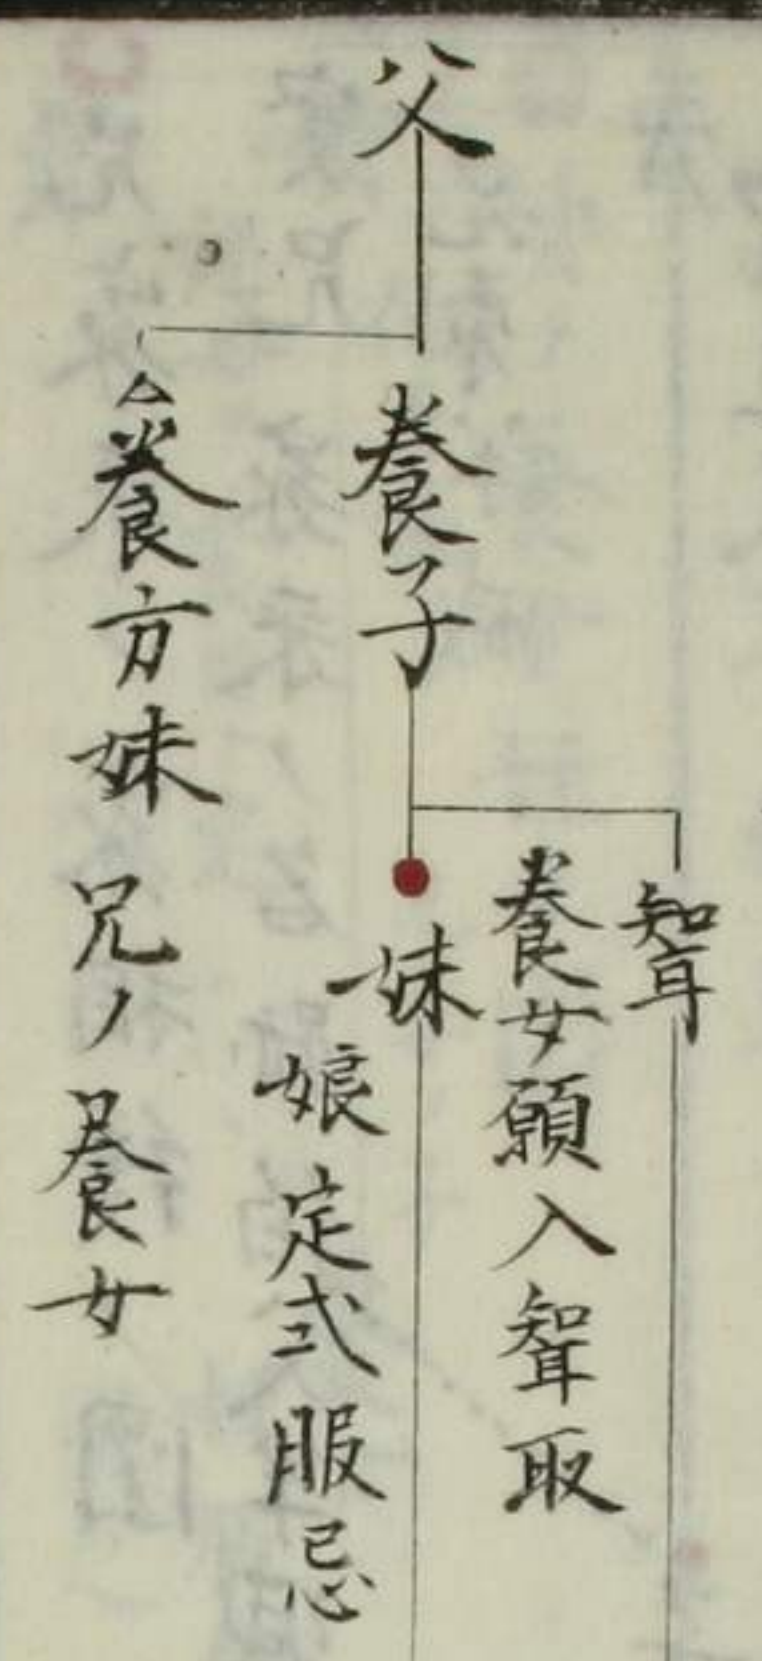 父
聟
養女願入聟取
養子
妹
娘定式服忌
△養方妹 兄ノ養女